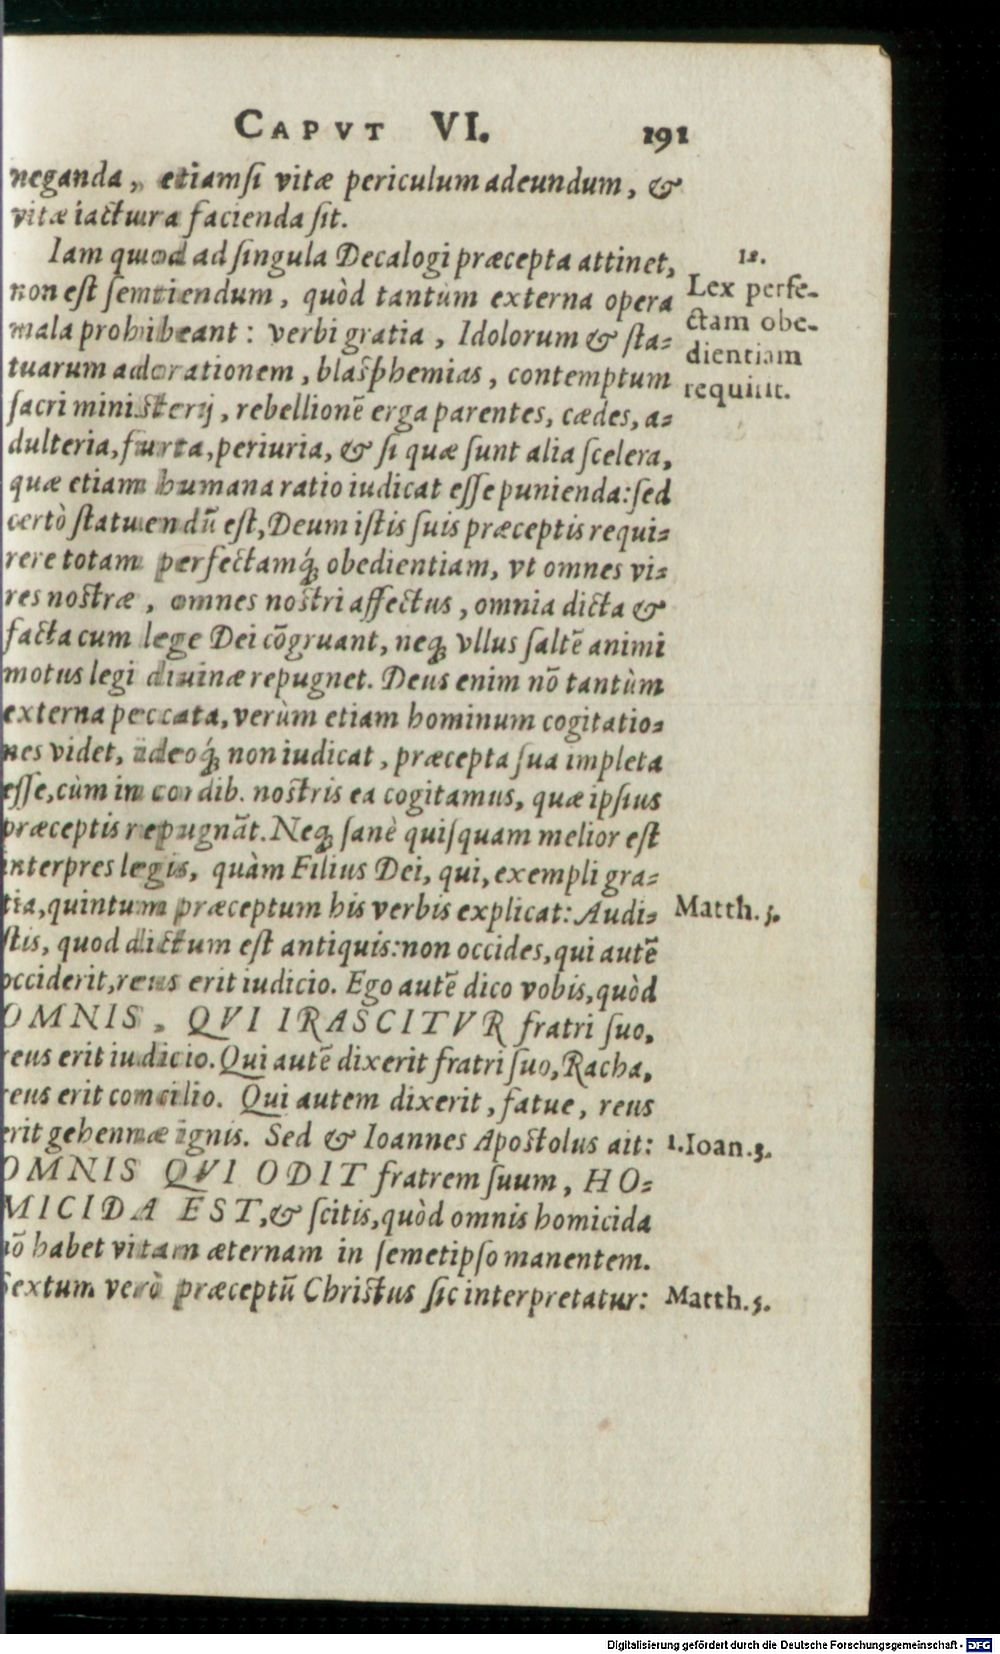 CAPVT VI. 191
neganda, etiamſi vitæ periculum adeundum, &
vitæ iactura facienda ſit.
Iam quod ad ſingula Decalogi præcepta attinet,
non eſt ſentiendum, quòd tantum externa opera
mala prohibeant: verbi gratia, Idolorum & ſta-
tuarum adorationem, blaſphemias, contemptum
ſacri miniſterij, rebellionē erga parentes, cædes, a-
dulteria, furta, periuria, & ſi quæ ſunt alia ſcelera,
quæ etiam humana ratio iudicat eſſe punienda: ſed
certò ſtatuendū eſt, Deum iſtis ſuis præceptis requi-
rere totam perfectamq́; obedientiam, vt omnes vi-
res noſtræ, omnes noſtri affectus, omnia dicta &
facta cum lege Dei cōgruant, neq; vllus ſaltē animi
motus legi diuinæ repugnet. Deus enim nō tantùm
externa peccata, verùm etiam hominum cogitatio-
nes videt, ideoq́; non iudicat, præcepta ſua impleta
eſſe, cùm in cordib. noſtris ea cogitamus, quæ ipſius
præceptis repugnāt. Neq; ſanè quiſquam melior eſt
interpres legis, quàm Filius Dei, qui, exempli gra-
tia, quintum præceptum his verbis explicat: Audi-
ſtis, quod dictum eſt antiquis: non occides, qui autē
occiderit, reus erit iudicio. Ego autē dico vobis, quòd
OMNIS, QVI IRASCITVR fratri ſuo,
reus erit iudicio. Qui autē dixerit fratri ſuo, Racha,
reus erit concilio. Qui autem dixerit, fatue, reus
erit gehennæ ignis. Sed & Ioannes Apoſtolus ait:
OMNIS QVI ODIT fratrem ſuum, HO-
MICIDA EST, & ſcitis, quòd omnis homicida
nō habet vitam æternam in ſemetipſo manentem.
Sextum verò præceptū Chriſtus ſic interpretatur:
12.
Lex perfe-
ctam obe-
dientiam
requirit.
Matth. 5.
1. Ioan. 3.
Matth. 5.
Digitalisierung gefördert durch die Deutsche Forschungsgemeinschaft - DFG